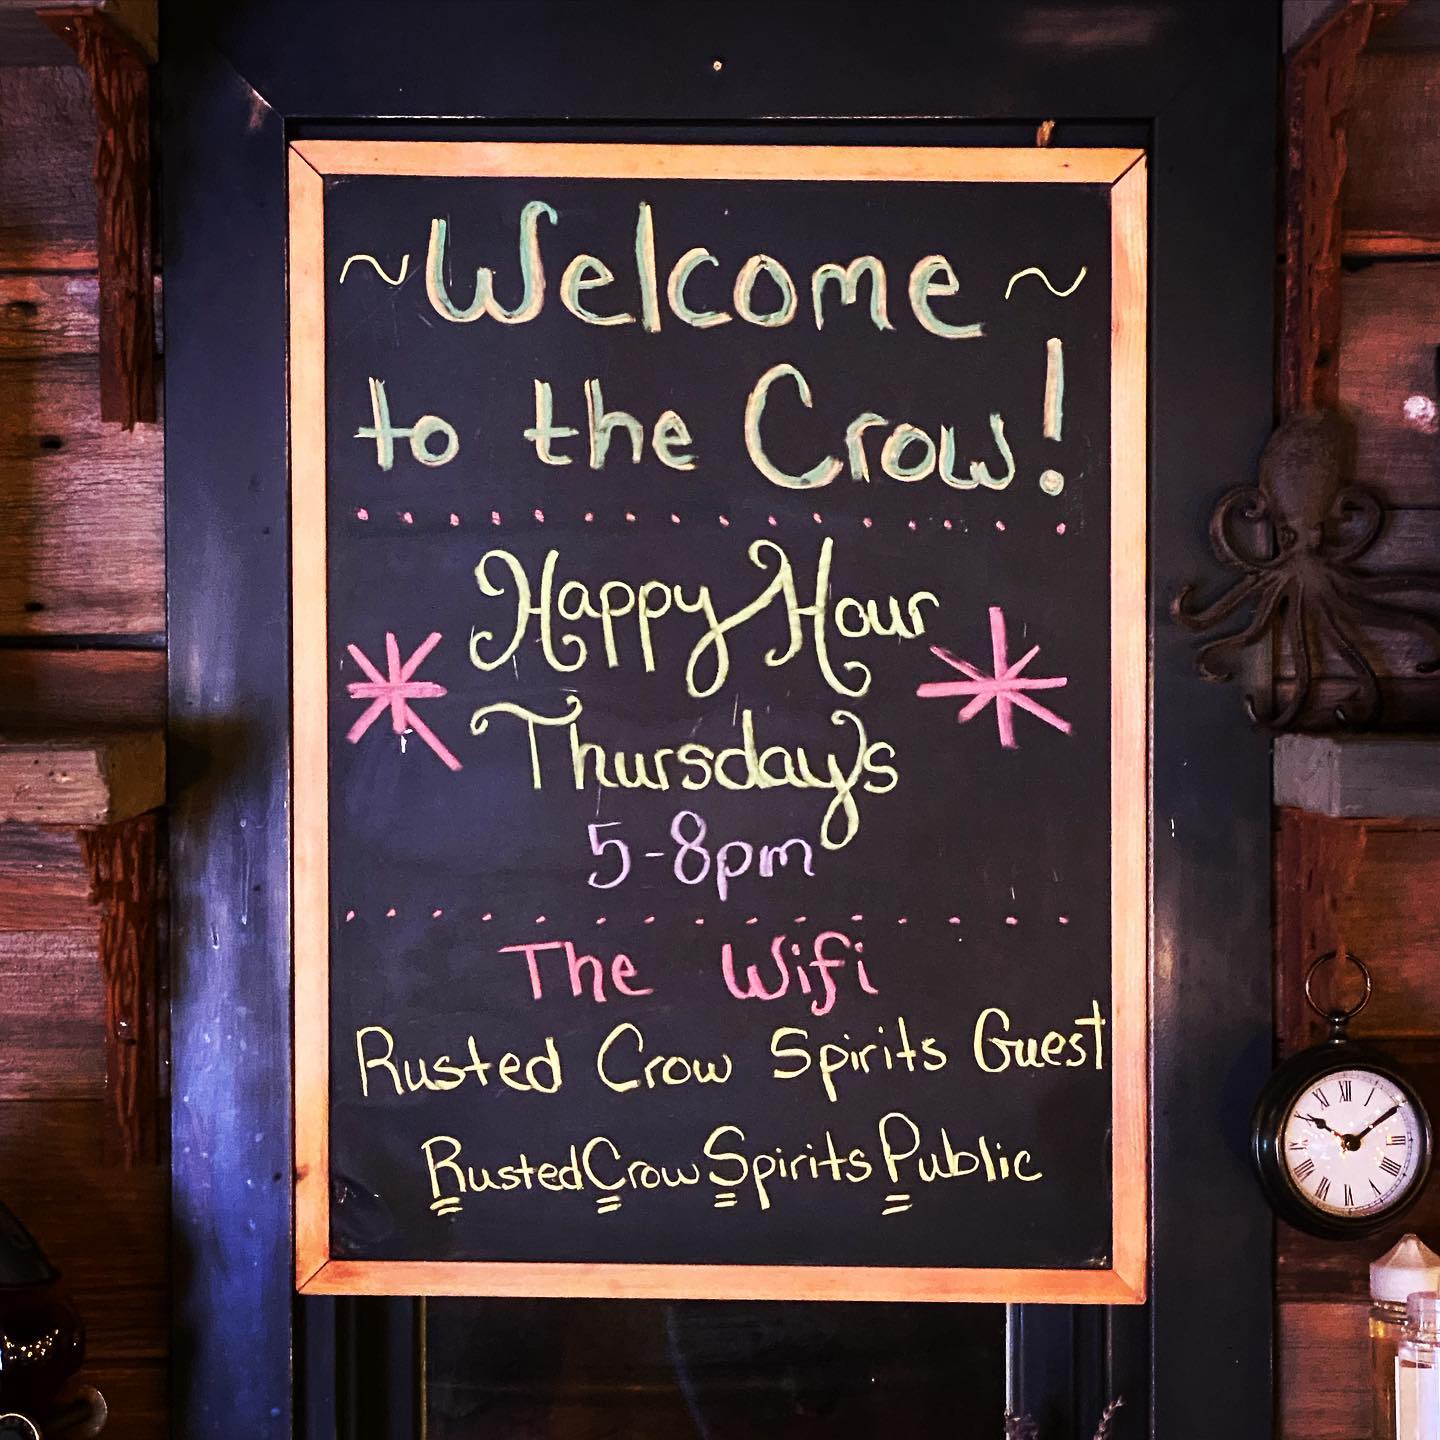 ~Welcome~
to the Crow!
Happy Hour
Thursday's
5-8pm
The Wifi
Rusted Crow Spirits Guest
RustedCrowSpiritsPublic